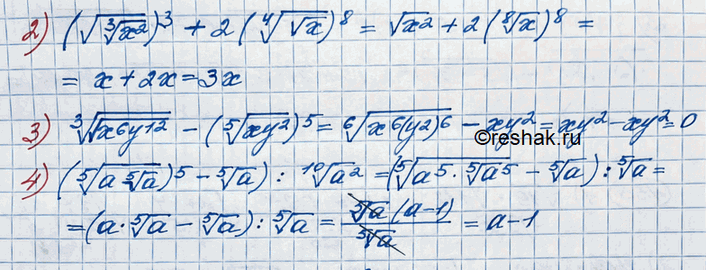 2) (√(∛(x²)))³ + 2(∜(√x))⁸ = √x² + 2(⁸√x)⁸ =
= x + 2x = 3x
3) ∛(√(x⁶y¹²)) − (⁵√(xy²))⁵ = ⁶√(x⁶(y²)⁶) − xy² = xy² − xy² = 0
©reshak.ru
4) (⁵√(a ⁵√a)⁵ − ⁵√a) : ¹⁰√a² = (⁵√(a⁵ · ⁵√a⁵) − ⁵√a) : ⁵√a =
= (a · ⁵√a − ⁵√a) : ⁵√a = ⁵√a (a−1) / ⁵√a = a − 1